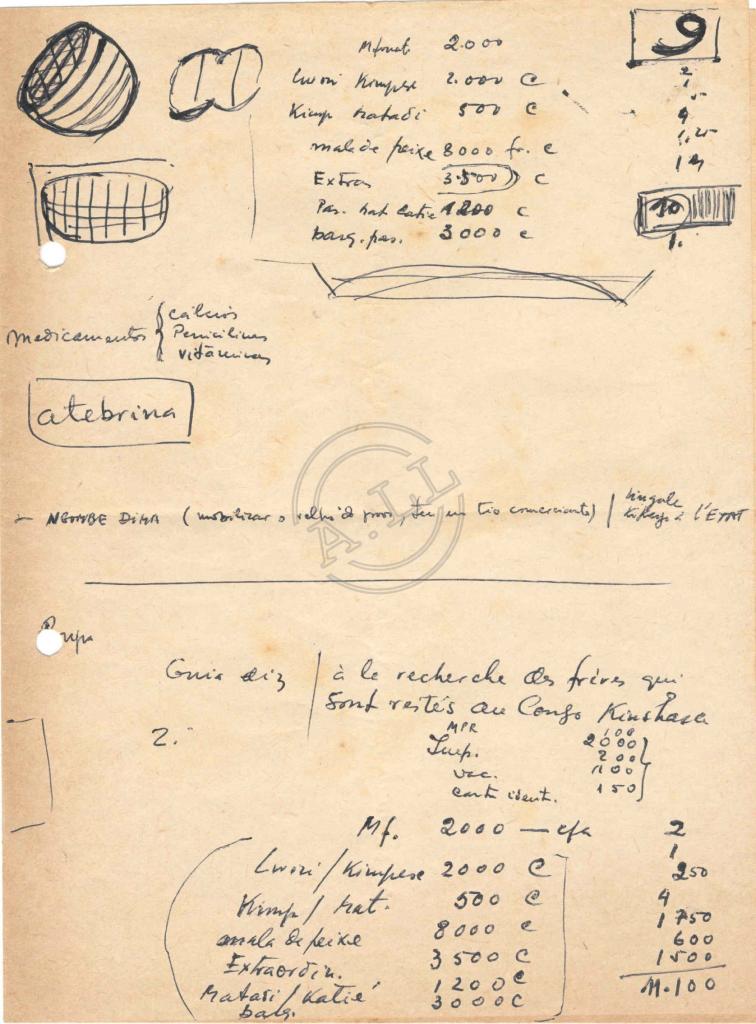 Mfouati 2.000
9
Lwozi Kimpese 2.000 C
2
1
Kimp Matadi 500 C
4
mala de peixe 8000 fr. C
1,25
Extras 3.500 C
Pas. Mat Catie 1200 C
10
barg. pas. 3000 C
1.
Medicamentos { cálcios
Penicilinas
vitaminas
atebrina
A.LL
- NGOMBE DIMA (mobilizar o velho do povo, tem um tio comerciante) | lingala
à l'ETAT
Guia diz | à la recherche des frères qui
sont restés au Congo Kinshasa
2.
MPR 100
Imp. 2000
200
vac. 100
carte ident. 150
Mf. 2000 — cfa 2
1
Lwozi / Kimpese 2000 C 250
Kimp / Mat. 500 C 4
mala de peixe 8000 C 1750
Extraordin. 3500 C 600
Matadi / Katié 1200 C 1500
barg. 3000 C 11.100